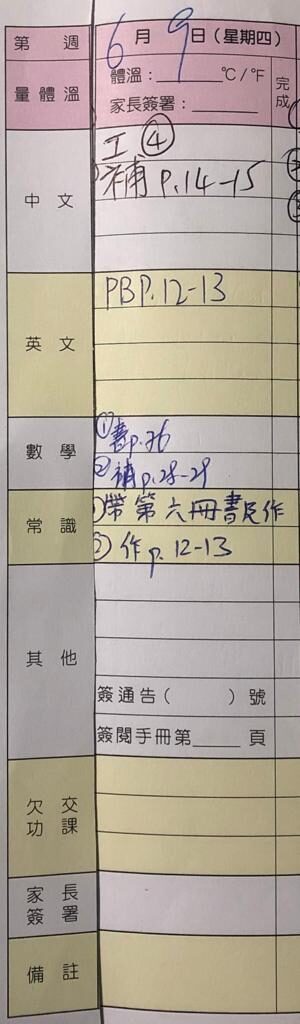 第 週 6月9日(星期四)
量體溫 體溫:______℃/℉
家長簽署:______
完成
中文 工④
補 p.14-15
英文 PB P.12-13
數學 ①書p.76
②補p.28-29
常識 ①帶第六冊書及作
②作p.12-13
其他
簽通告( )號
簽閱手冊第____頁
欠交功課
家長簽署
備註